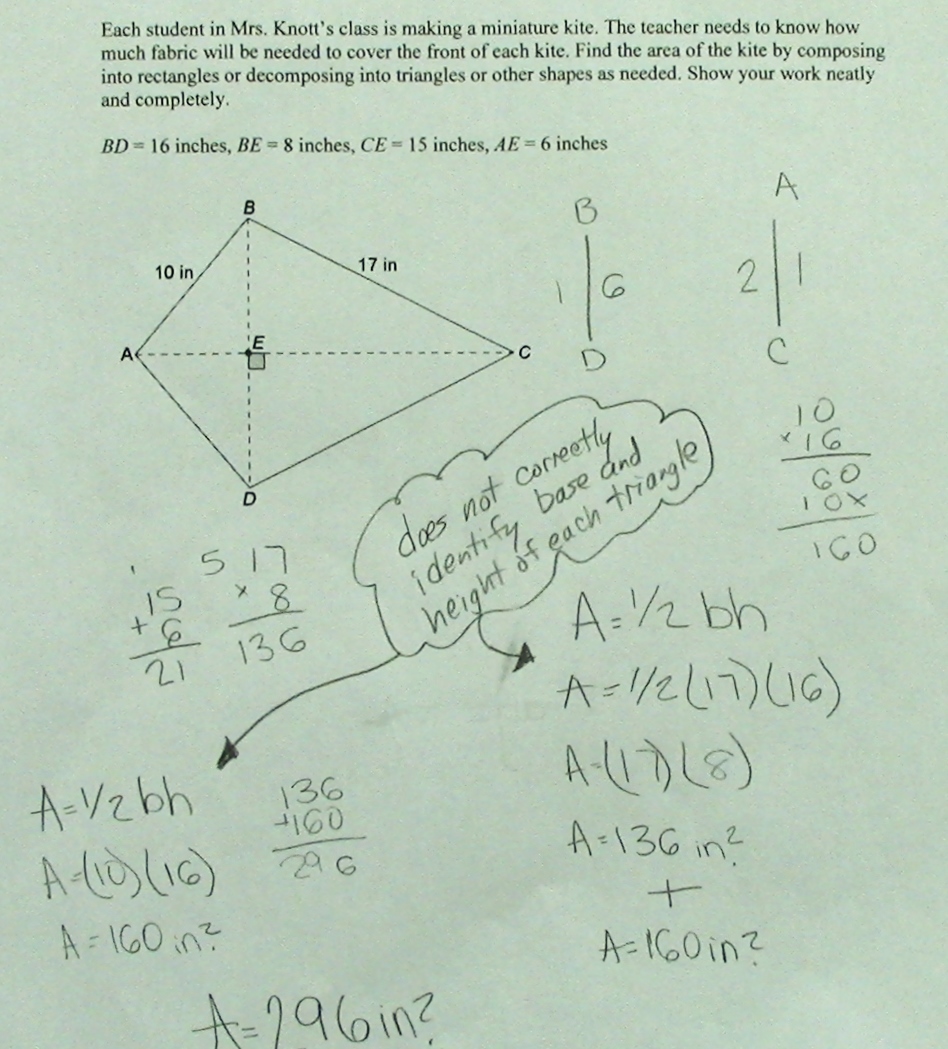 Each student in Mrs. Knott's class is making a miniature kite. The teacher needs to know how
much fabric will be needed to cover the front of each kite. Find the area of the kite by composing
into rectangles or decomposing into triangles or other shapes as needed. Show your work neatly
and completely.
BD = 16 inches, BE = 8 inches, CE = 15 inches, AE = 6 inches
B
10 in
17 in
A
E
C
D
B
1 | 6
D
A
2 | 1
C
10
× 16
60
10x
160
does not correctly
identify base and
height of each triangle
1
15
+ 6
21
5
17
× 8
136
A=1/2 bh
A=(10)(16)
A=160 in²
136
+160
296
A=1/2 bh
A=1/2(17)(16)
A=(17)(8)
A=136 in²
+
A=160 in²
A=296 in²